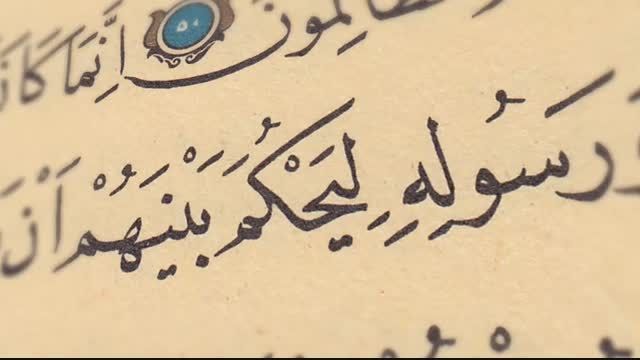 الظَّالِمُونَ ۝٥٠ اِنَّمَا كَانَ
وَرَسُولِهِ لِيَحْكُمَ بَيْنَهُمْ اَنْ